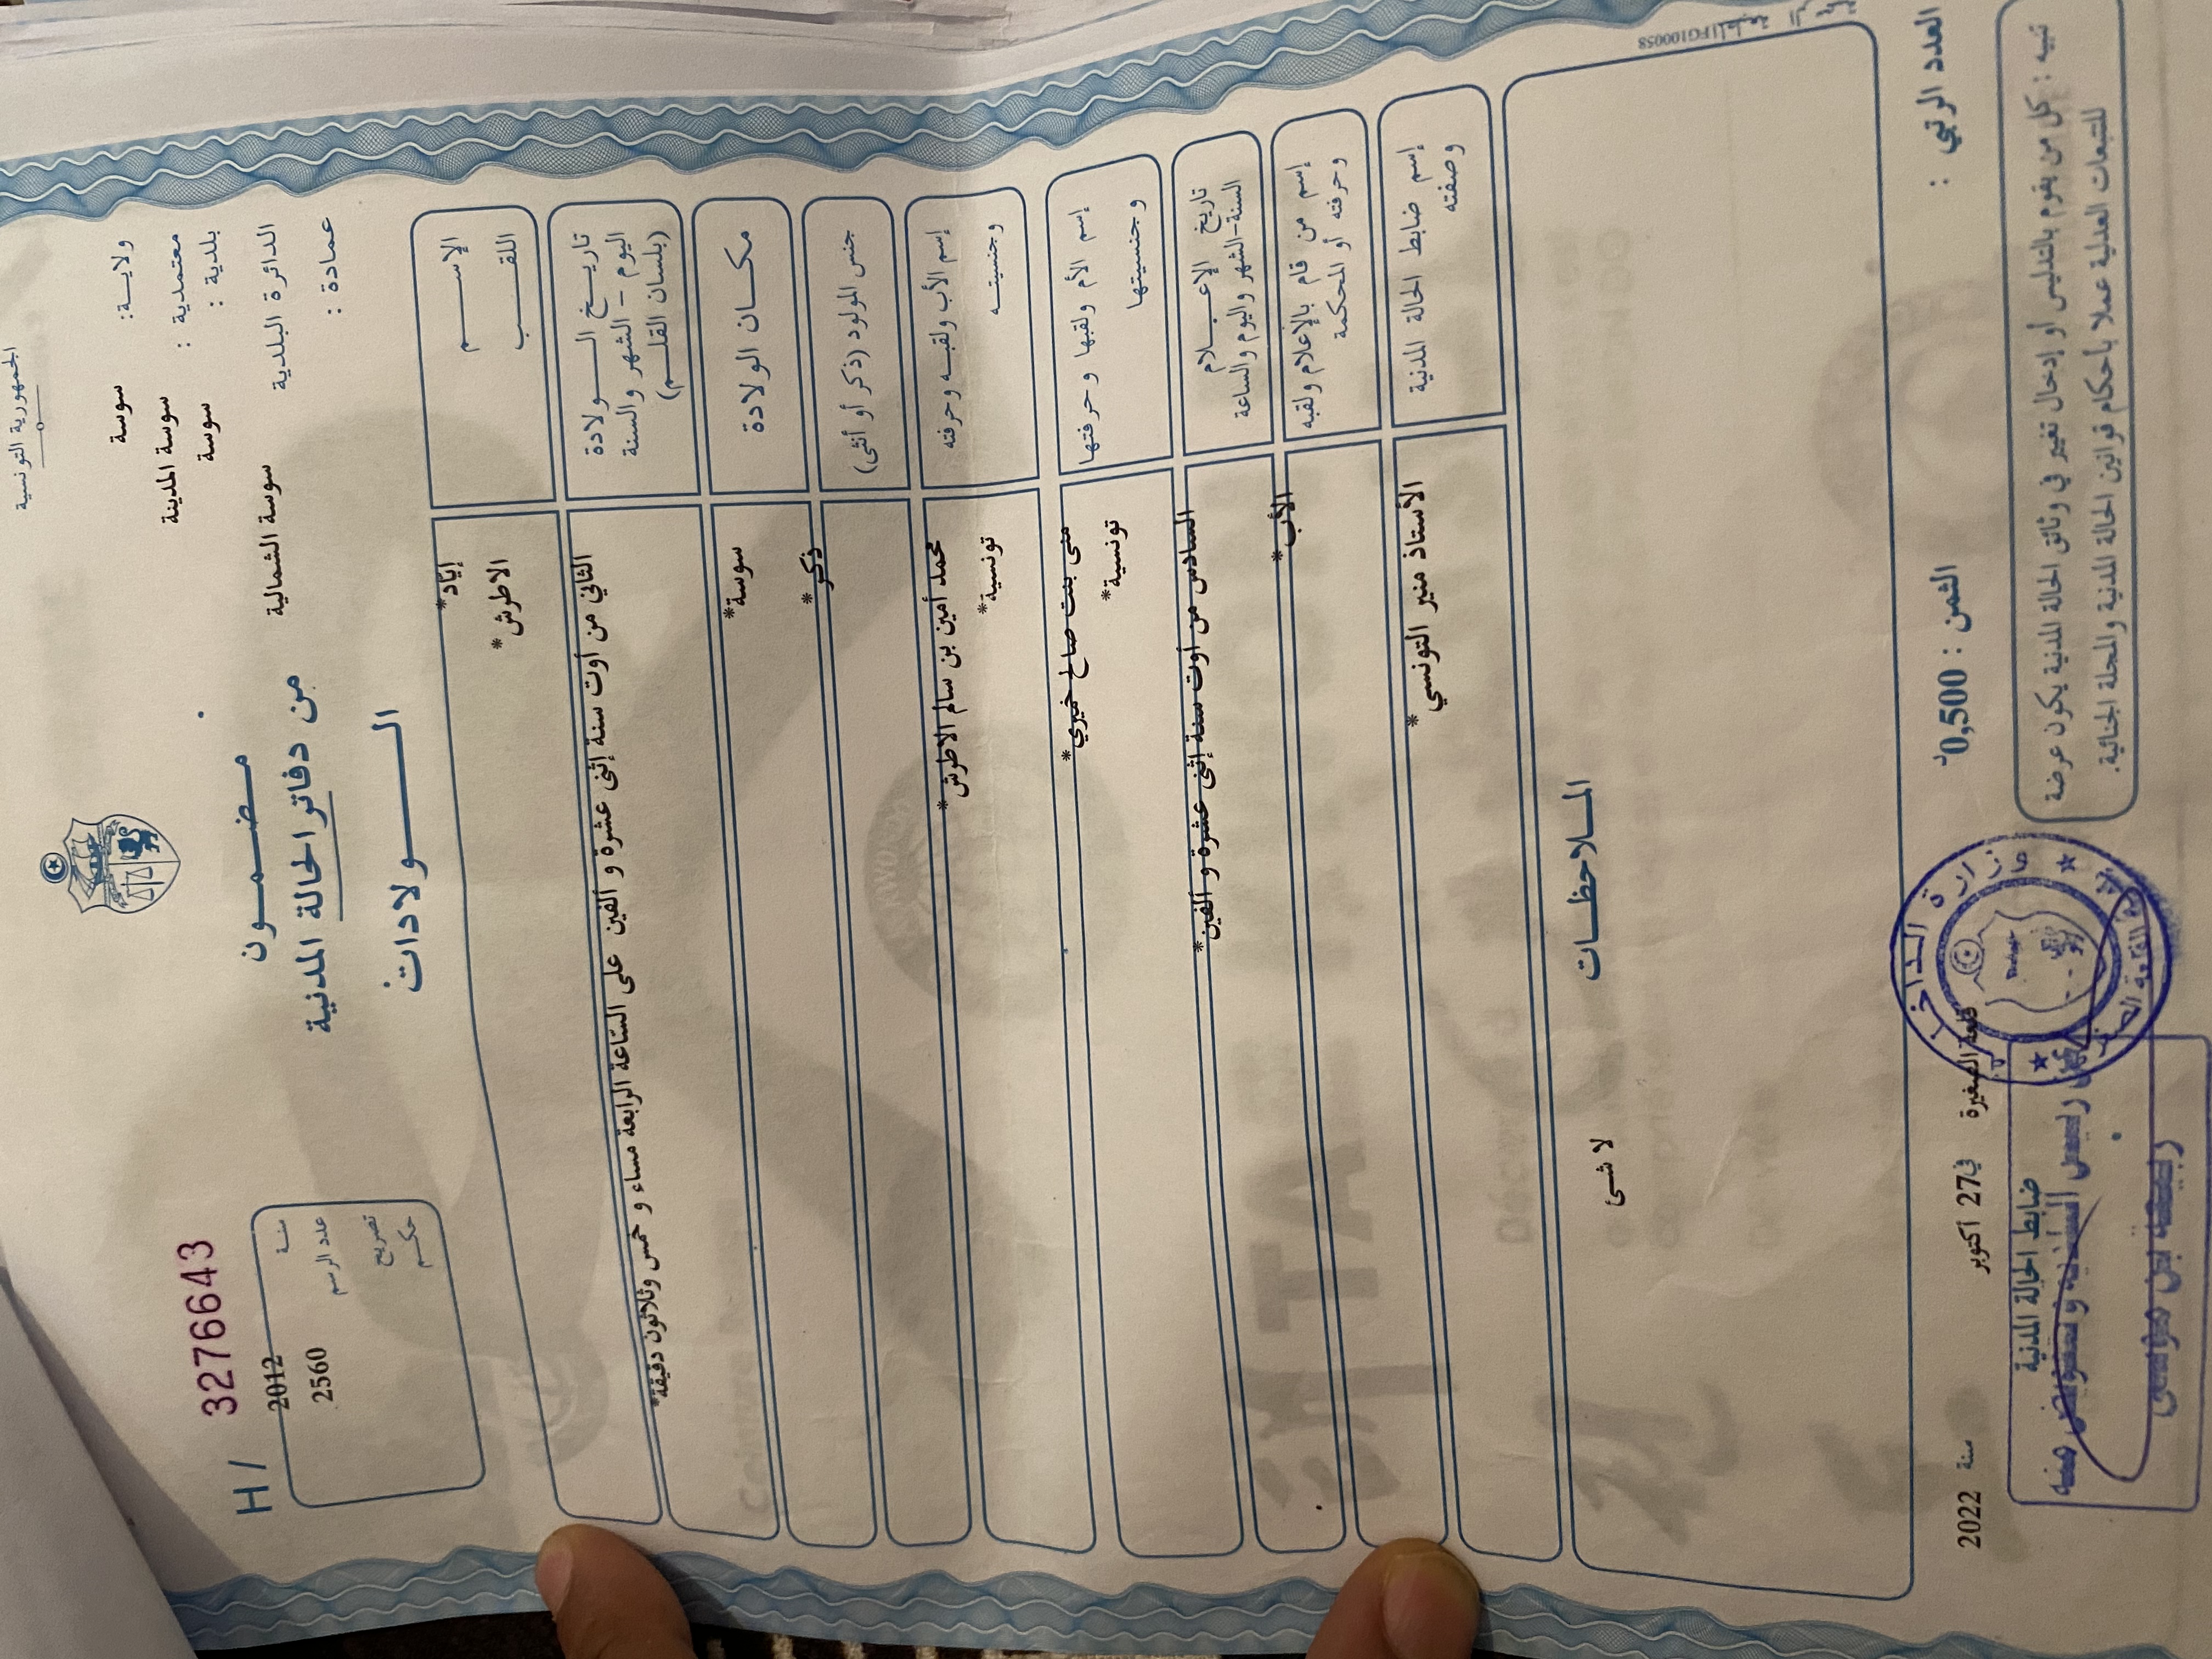 الجمهورية التونسية
ولاية: سوسة
معتمدية : سوسة المدينة
بلدية : سوسة
الدائرة البلدية سوسة الشمالية
عمادة :
مضمون
من دفاتر الحالة المدنية
الولادات
H/ 3276643
سنة 2012
عدد الرسم 2560
تصريح
حكم
الإسم إياد*
اللقب الاطرش*
تاريخ الولادة
اليوم - الشهر والسنة
(بلسان القلم)
الثاني من أوت سنة إثنى عشرة و ألفين على الساعة الرابعة مساء و خمس وثلاثون دقيقة*
مكان الولادة سوسة*
جنس المولود (ذكر أو أنثى) ذكر*
إسم الأب ولقبه وحرفته محمد أمين بن سالم الاطرش*
وجنسيته تونسية*
إسم الأم ولقبها وحرفتها منى بنت صالح خميري*
وجنسيتها تونسية*
تاريخ الإعلام
السنة-الشهر واليوم والساعة
السادس من أوت سنة إثنى عشرة و ألفين*
إسم من قام بالإعلام ولقبه
وحرفته أو المحكمة
الأب*
إسم ضابط الحالة المدنية
وصفته
الأستاذ منير التونسي*
الملاحظات
لا شئ
FG100058
العدد الرتبي :
الثمن : 0,500د
قلعة الصغيرة في 27 أكتوبر سنة 2022
ضابط الحالة المدنية
تنبيه : كل من يقوم بالتدليس أو إدخال تغيير في وثائق الحالة المدنية يكون عرضة
للتتبعات العدلية عملا بأحكام قوانين الحالة المدنية والمجلة الجنائية.
وزارة الداخلية